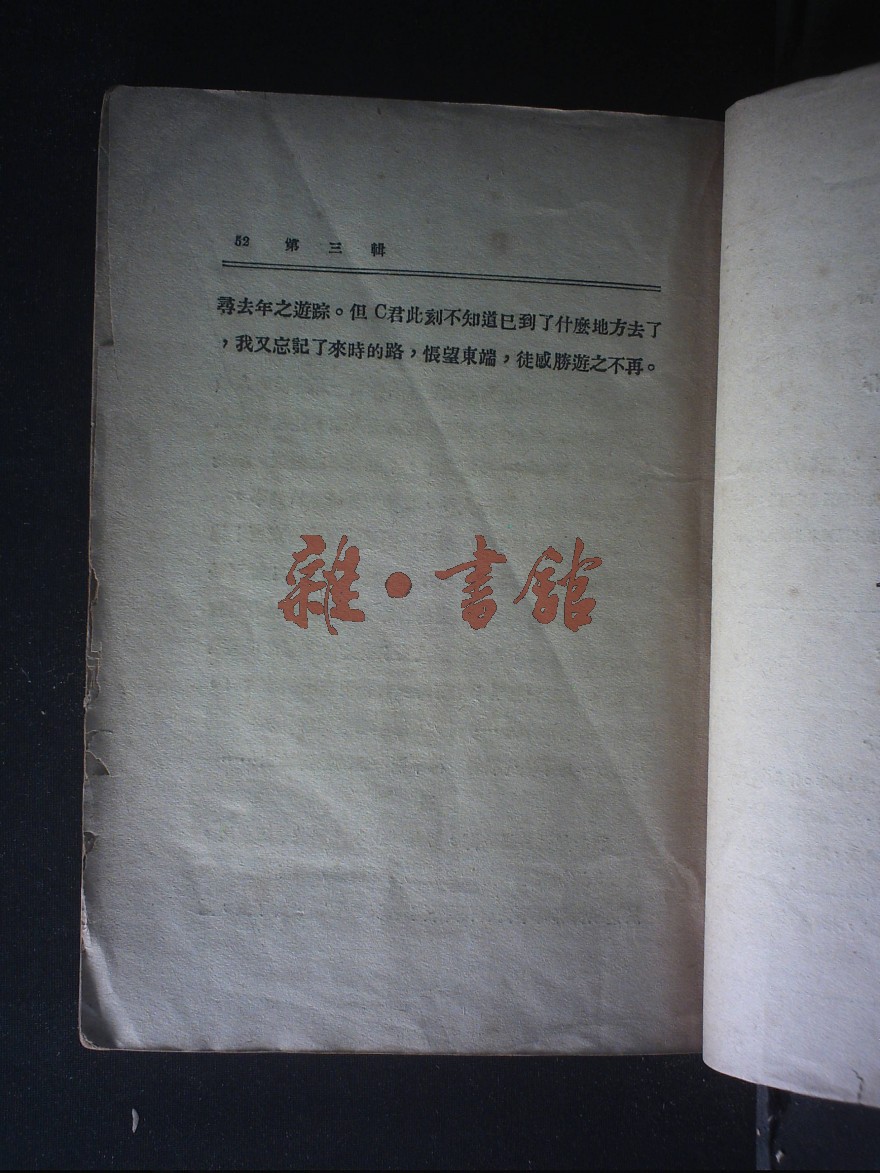 52 第三輯
尋去年之遊踪。但 C君此刻不知道已到了什麼地方去了
，我又忘記了來時的路，悵望東端，徒感勝遊之不再。
雜·書館